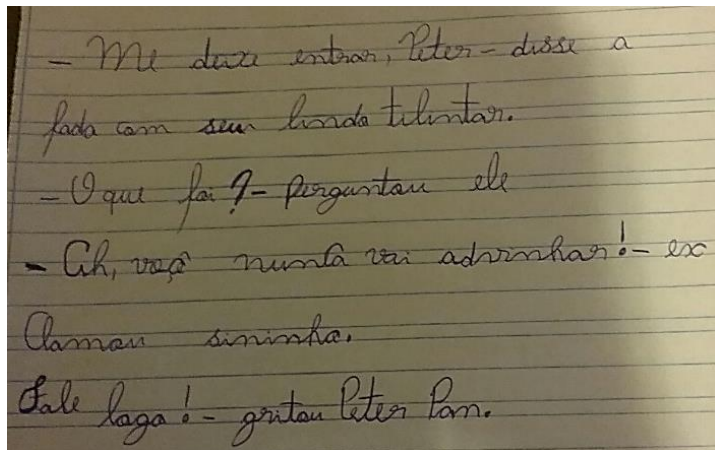 - Me deixe entrar, Peter - disse a
fada com seu lindo tilintar.
- O que foi ? - perguntou ele
- Ah, você nunca vai advinhar! - ex
clamou sininho.
Fale logo! - gritou Peter Pan.